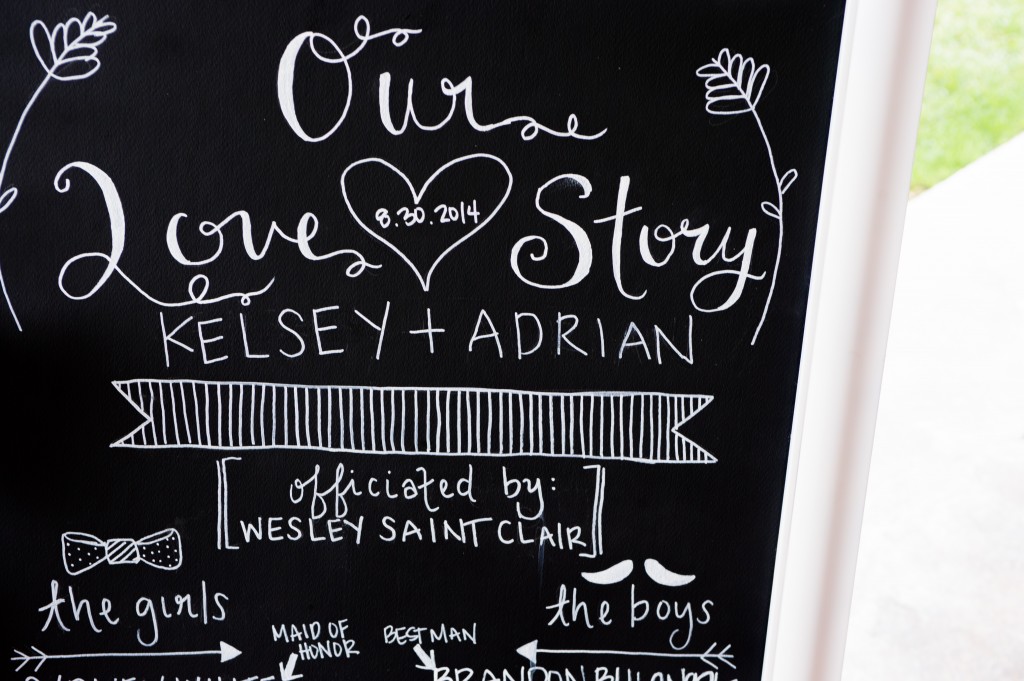 Our
Love 8.30.2014 Story
KELSEY + ADRIAN
officiated by:
WESLEY SAINT CLAIR
the girls
the boys
MAID OF HONOR
BEST MAN
BRANDON